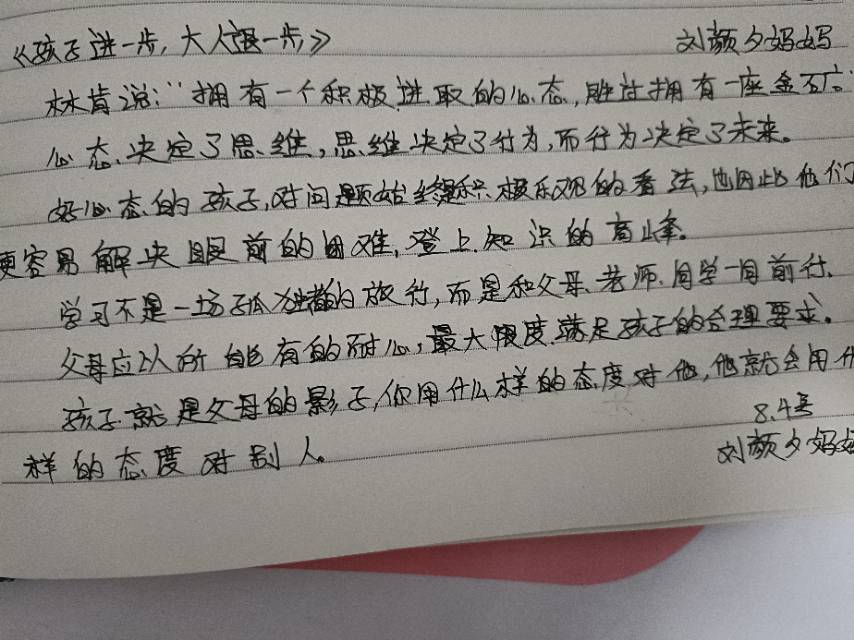 《孩子进一步,大人退一步,》 刘颜夕妈妈
林肯说:“拥有一个积极进取的心态,胜过拥有一座金矿。”
心态决定了思维,思维决定了行为,而行为决定了未来。
好心态的孩子,对问题始终积极乐观的看法,也因此他们
更容易解决眼前的困难,登上知识的高峰。
学习不是一场孤独的旅行,而是和父母、老师、同学一同前行.
父母应以所能有的耐心,最大限度满足孩子的合理要求。
孩子就是父母的影子,你用什么样的态度对他,他就会用什
样的态度对别人。
8.4号
刘颜夕妈妈